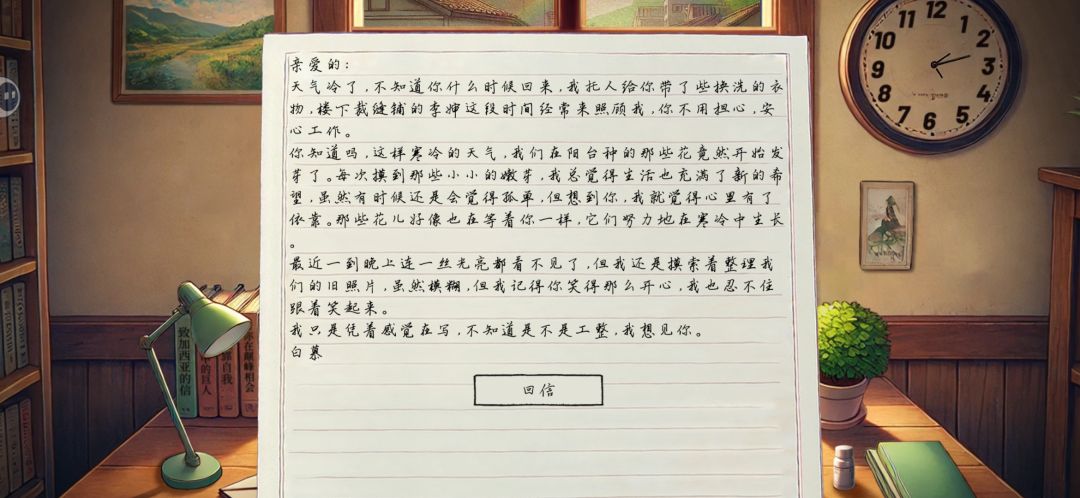 亲爱的:
天气冷了,不知道你什么时候回来,我托人给你带了些换洗的衣
物,楼下裁缝铺的李婶这段时间经常来照顾我,你不用担心,安
心工作。
你知道吗,这样寒冷的天气,我们在阳台种的那些花竟然开始发
芽了。每次摸到那些小小的嫩芽,我总觉得生活也充满了新的希
望,虽然有时候还是会觉得孤单,但想到你,我就觉得心里有了
依靠。那些花儿好像也在等着你一样,它们努力地在寒冷中生长
。
最近一到晚上连一丝光亮都看不见了,但我还是摸索着整理我
们的旧照片,虽然模糊,但我记得你笑得那么开心,我也忍不住
跟着笑起来。
我只是凭着感觉在写,不知道是不是工整,我想见你。
白慕
回信
12
1
2
3
4
5
6
7
8
9
10
11
致加西亚的信
的巨人
靠自我
在巅峰相会